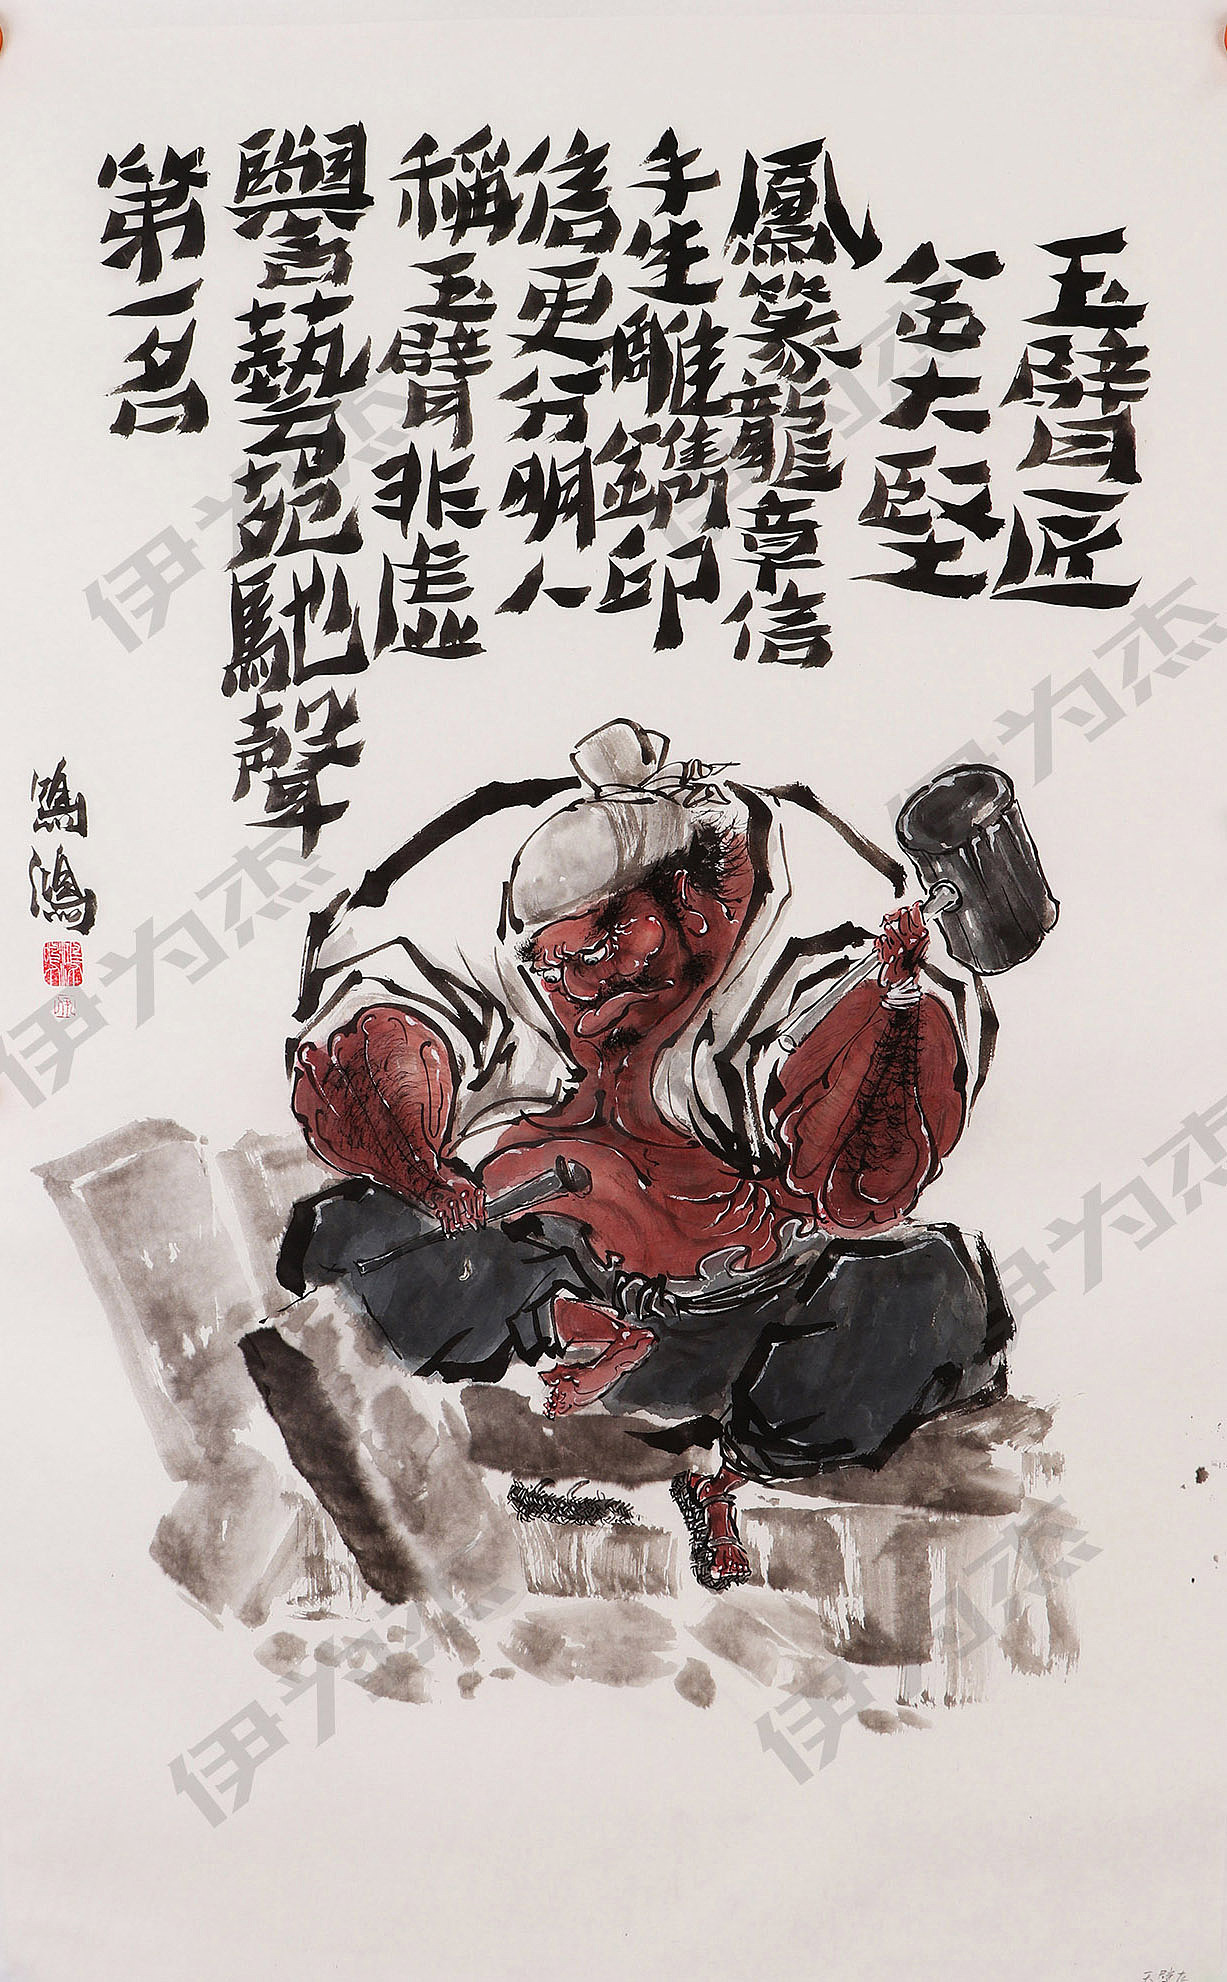 玉臂匠
金大堅
鳳篆龍章信
手生雕鐫印
信更分明人
稱玉臂非虛
譽藝苑馳聲
第一名
馮鴻
伊为杰
伊为杰
伊为杰
伊为杰
伊为杰
伊为杰
伊为杰